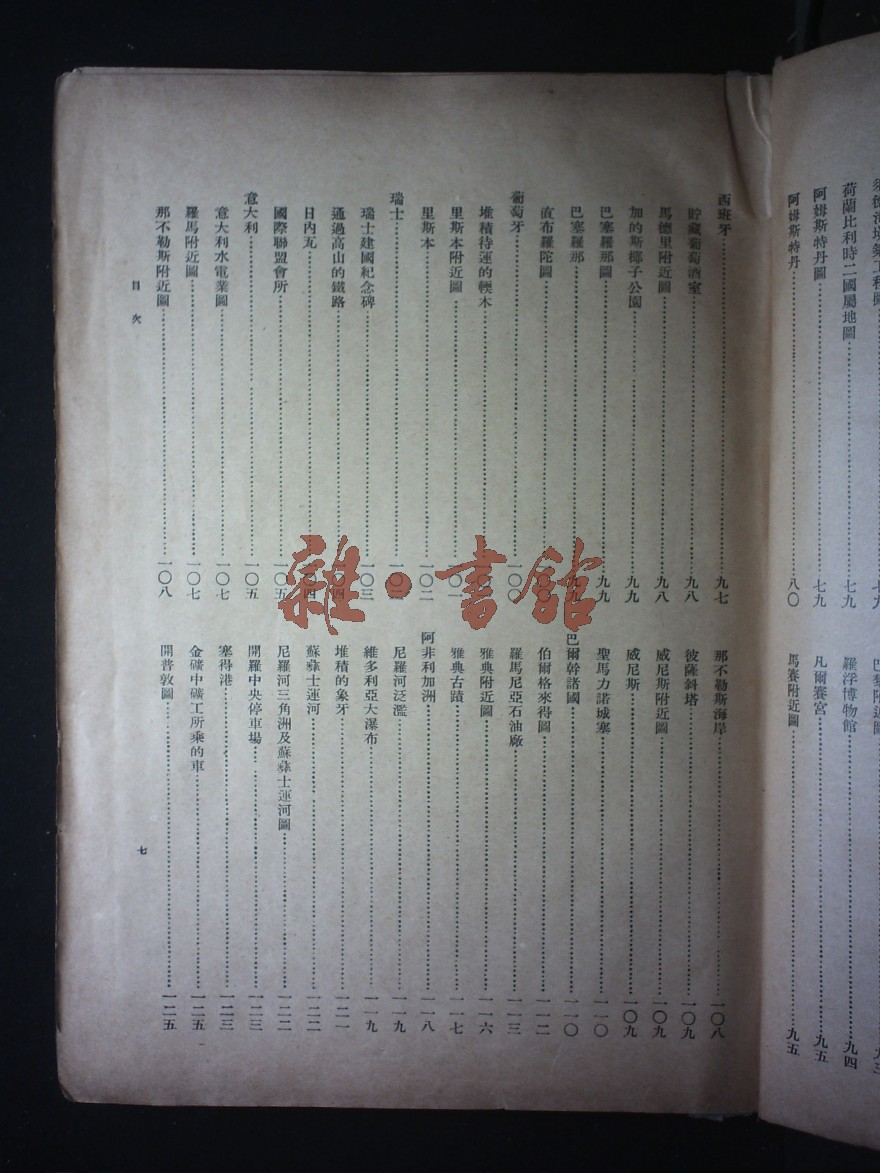 荷蘭比利時二國屬地圖……七九
阿姆斯特丹圖……七九
阿姆斯特丹……八〇
羅浮博物館……九四
凡爾賽宮……九五
馬賽附近圖……九五
西班牙……九七
貯藏葡萄酒室……九八
馬德里附近圖……九八
加的斯椰子公園……九九
巴塞羅那圖……九九
巴塞羅那……九九
直布羅陀圖……一〇〇
葡萄牙……一〇〇
堆積待運的輭木……
里斯本附近圖……一〇一
里斯本……一〇二
瑞士……一〇二
瑞士建國紀念碑……一〇三
通過高山的鐵路……一〇四
日內瓦……一〇四
國際聯盟會所……一〇五
意大利……一〇五
意大利水電業圖……一〇七
羅馬附近圖……一〇七
那不勒斯附近圖……一〇八
那不勒斯海岸……一〇八
彼薩斜塔……一〇九
威尼斯附近圖……一〇九
威尼斯……一〇九
聖馬力諾城塞……一一〇
巴爾幹諸國……一一〇
伯爾格來得圖……一一二
羅馬尼亞石油廠……一一三
雅典附近圖……一一六
雅典古蹟……一一七
阿非利加洲……一一八
尼羅河泛濫……一一九
維多利亞大瀑布……一一九
堆積的象牙……一二一
蘇彝士運河……一二二
尼羅河三角洲及蘇彝士運河圖……一二二
開羅中央停車場……一二三
塞得港……一二三
金礦中礦工所乘的車……一二五
開普敦圖……一二五
目次
七
雜·書館